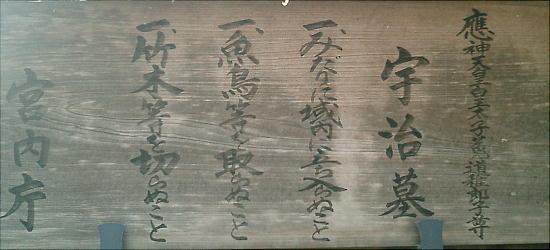 應神天皇皇太子菟道稚郎子尊
宇治墓
一、みだりに域内に立入らぬこと
一、魚鳥等を取らぬこと
一、竹木等を切らぬこと
宮内庁